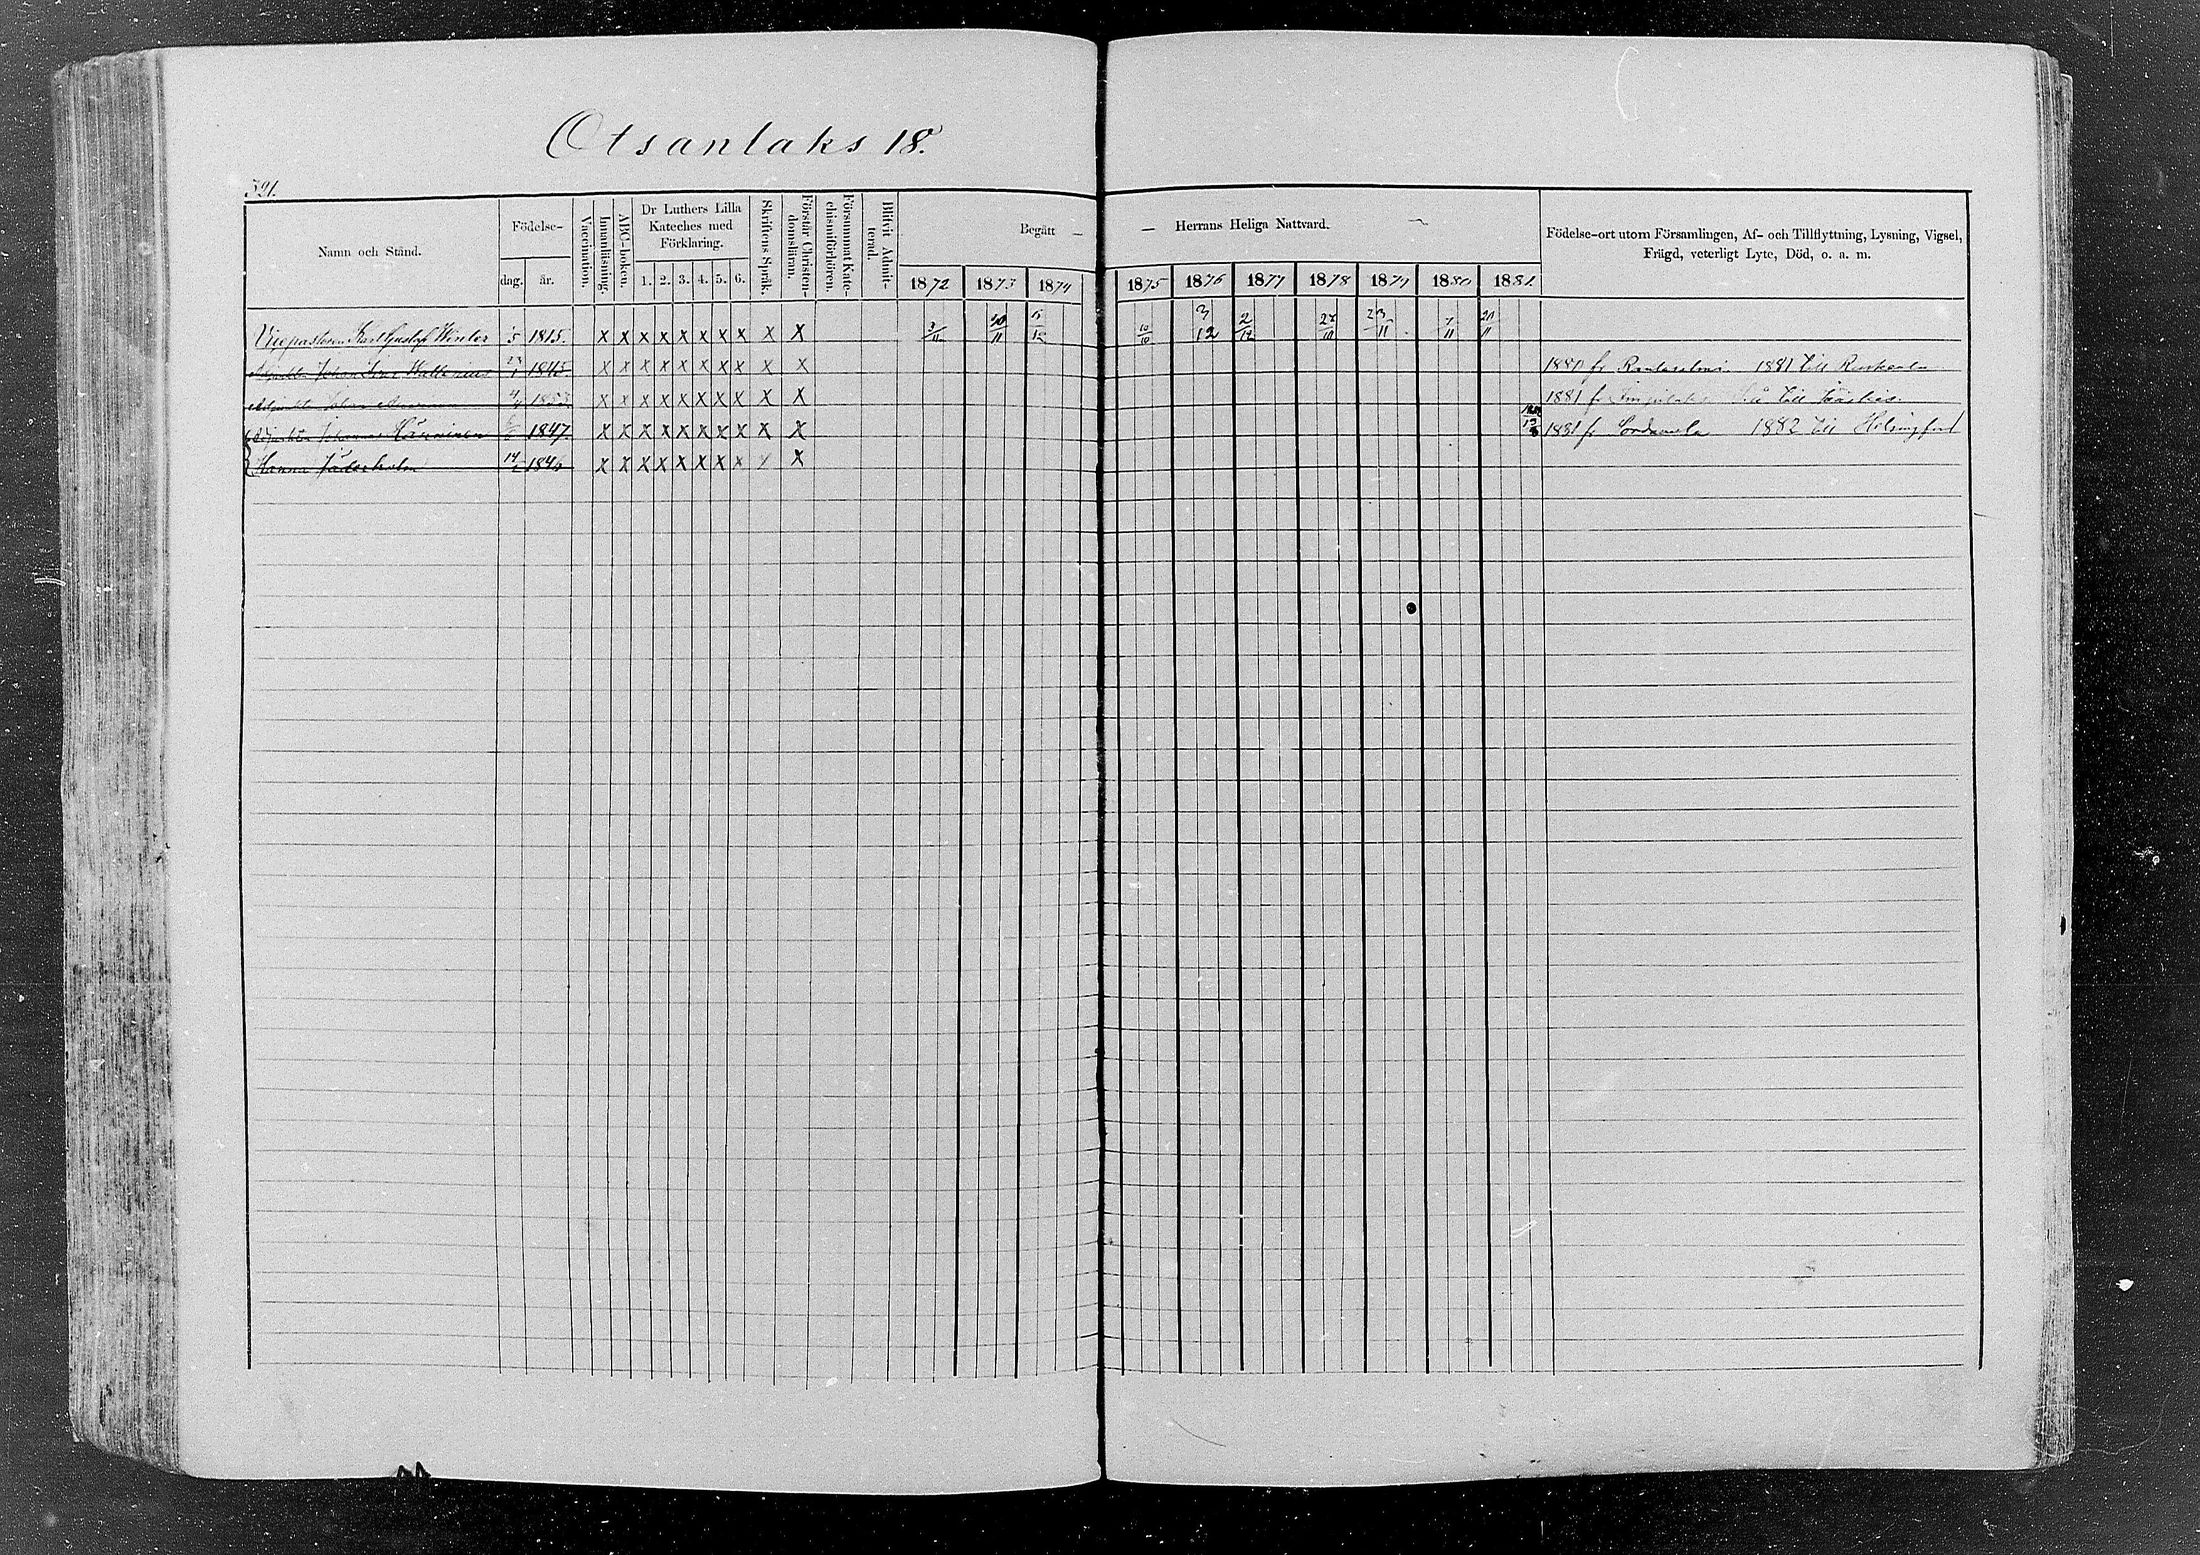 Otsanlaks 18.
521.
Namn och Stånd.
Födelse-
dag. år.
Vaccination.
Innanläsning.
ABC-boken.
Dr Luthers Lilla Kateches med Förklaring.
1. 2. 3. 4. 5. 6.
Skriftens Språk.
Förstår Christendomsläran.
Försummat Katechismiförhören.
Blifvit Admitterad.
Begått — — Herrans Heliga Nattvard.
1872 1873 1874 1875 1876 1877 1878 1879 1880 1881.
Födelse-ort utom Församlingen, Af- och Tillflyttning, Lysning, Vigsel,
Frägd, veterligt Lyte, Död, o. a. m.
Vicepastoren Karl Gustaf Winter 1815. x x x x x x x x x x 3/11 20/11 10/10 3 12 2/12 23/11 7/11 20/11
Johan 1845. x x x x x x x x x x 1880 fr Rantasalmi 1881 till Ruskeala
x x x x x x x x x x 1881 fr till
Adjunkten Johannes Hänninen 1847. x x x x x x x x x x 1881 fr Sordavala 1882 till Helsingfors
Hanna 14 1846 x x x x x x x x x x